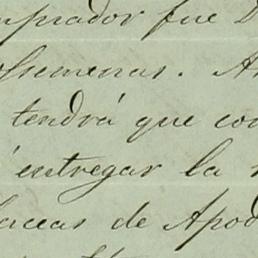 mprador fue D
osemenas. A
tendrá que co
entregar la
laceas de Apod